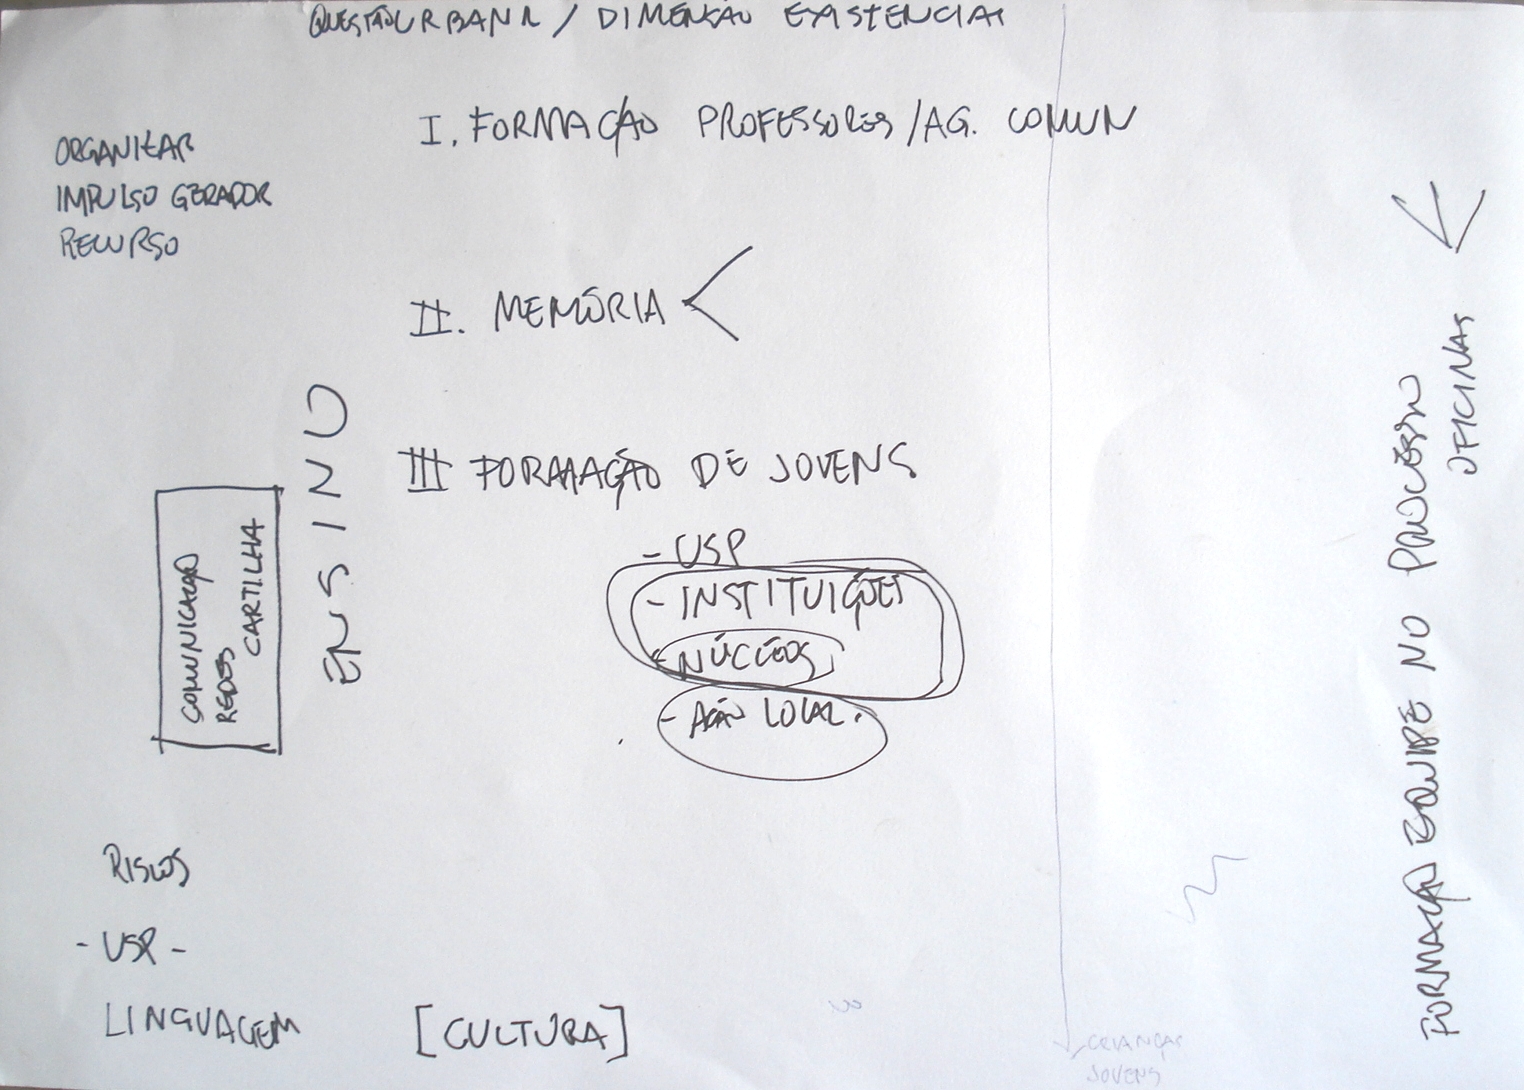 QUESTÃO URBANA / DIMENSÃO EXISTENCIAL
I. FORMAÇÃO PROFESSORES / AG. COMUN
ORGANIZAR
IMPULSO GERADOR
RECURSO
II. MEMÓRIA
III FORMAÇÃO DE JOVENS
- USP
- INSTITUIÇÕES
- NÚCLEOS
- AÇÃO LOCAL.
ENSINO
COMUNICAÇÃO
REDES
CARTILHA
RISCOS
- USP -
LINGUAGEM
[CULTURA]
FORMAÇÃO EQUIPE NO PROCESSO
OFICINAS
CRIANÇAS
JOVENS